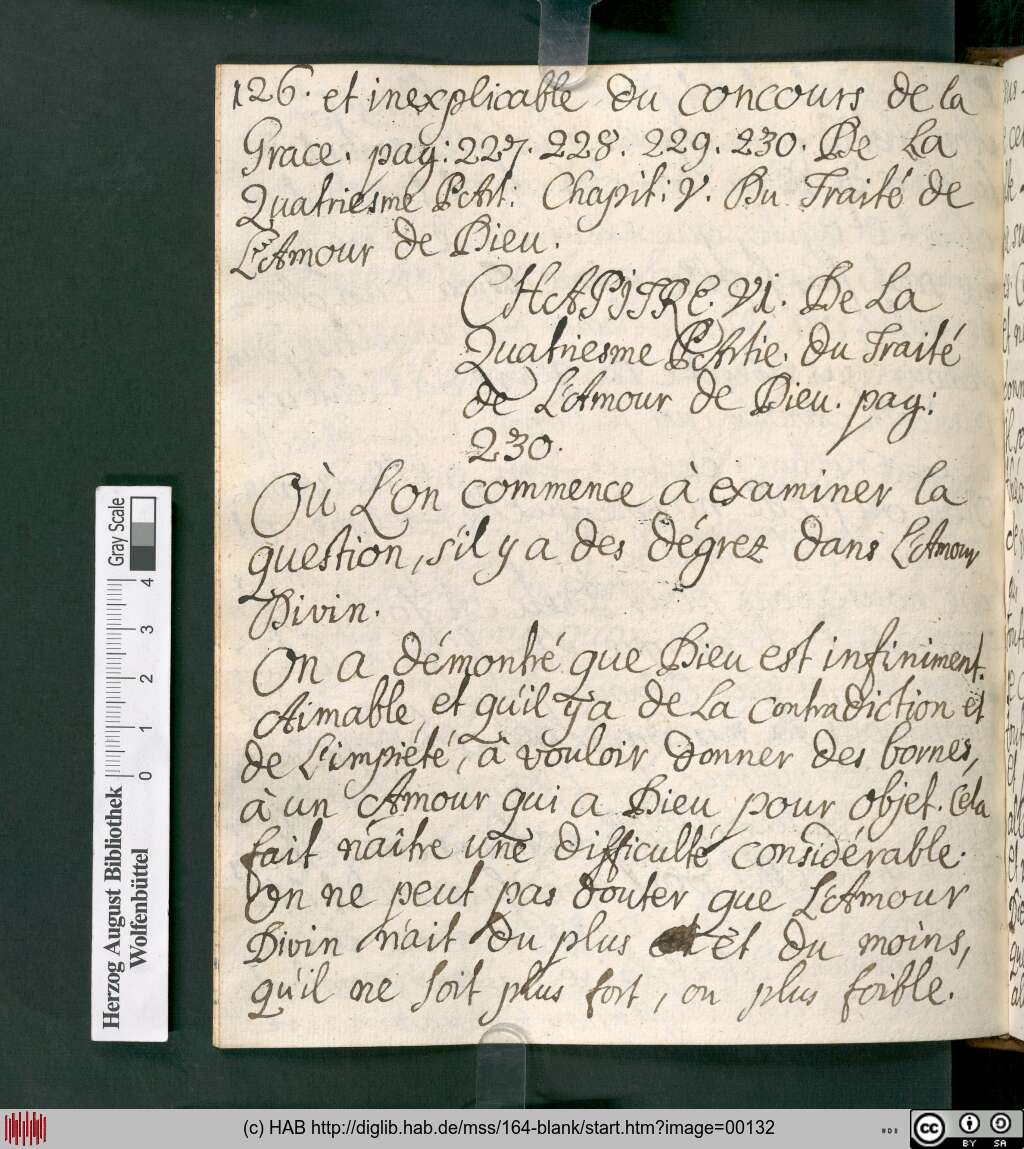 126. et inexplicable du concours de la
Grace. pag: 227. 228. 229. 230. De La
Quatriesme PArt: Chapit: V. Du Traité de
L'Amour de Dieu.
CHAPITRE. VI. De La
Quatriesme PArtie. du Traité
de L'Amour de Dieu. pag:
230.
Où L'on commence à examiner la
question, s'il y a des dégrez dans L'Amour
Divin.
On a démontré que Dieu est infiniment.
Aimable, et qu'il y a de La contradiction et
de L'impiété, à vouloir donner des bornes,
à un Amour qui a Dieu pour objet. Cela
fait náître une difficulté considérable.
On ne peut pas douter que L'Amour
Divin n'ait du plus et du moins,
qu'il ne soit plus fort, ou plus foible.
Herzog August Bibliothek
Wolfenbüttel
Gray Scale
0 1 2 3 4
(c) HAB http://diglib.hab.de/mss/164-blank/start.htm?image=00132
cc BY SA